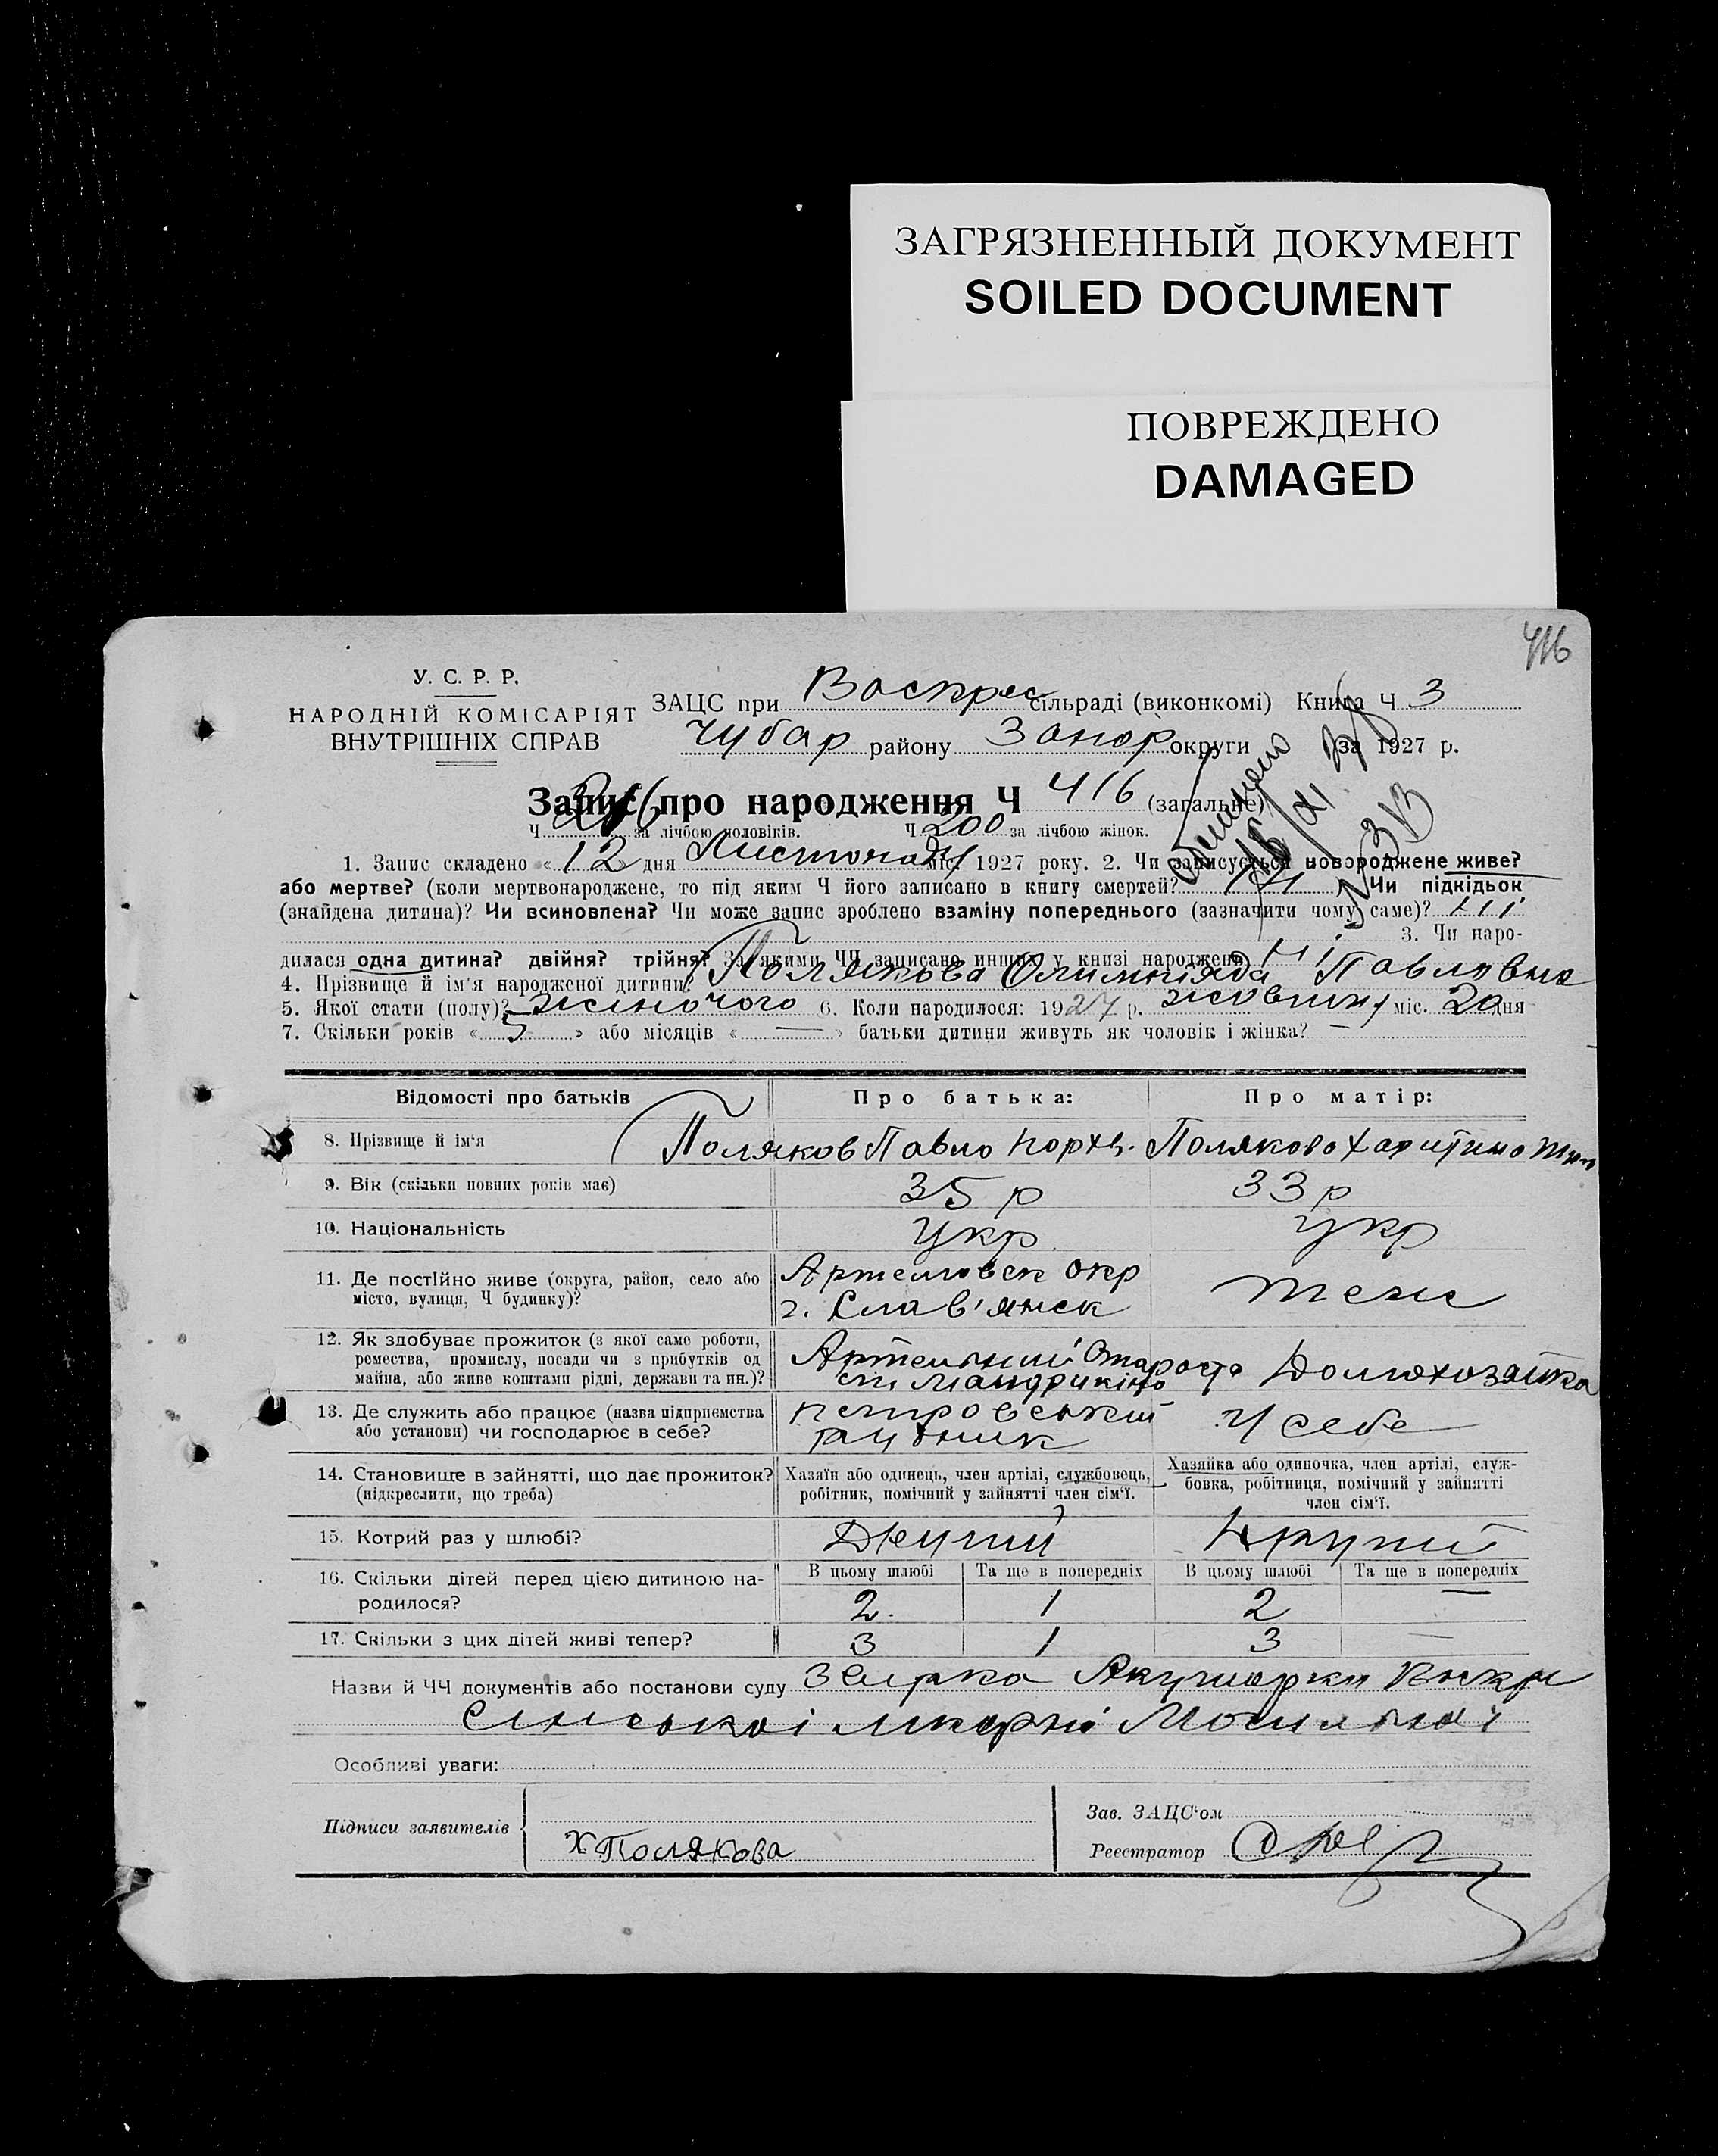 ЗАГРЯЗНЕННЫЙ ДОКУМЕНТ
SOILED DOCUMENT
ПОВРЕЖДЕНО
DAMAGED
416
У. С. Р. Р.
НАРОДНІЙ КОМІСАРІЯТ
ВНУТРІШНІХ СПРАВ
ЗАЦС при Воскрес сільраді (виконкомі) Книга Ч 3
Чубар району Запор округи за 1927 р.
Запис про народження Ч 416 (загальне)
Ч 216 за лічбою чоловіків. Ч 200 за лічбою жінок.
1. Запис складено « 12 дня Листопаду міс. 1927 року. 2. Чи записується новороджене живе?
або мертве? (коли мертвонароджене, то під яким Ч його записано в книгу смертей? Чи підкідьок
(знайдена дитина)? Чи всиновлена? Чи може запис зроблено взаміну попереднього (зазначити чому саме)?
3. Чи наро-
дилася одна дитина? двійня? трійня? За якими ЧЧ записано инших у книзі народжень
4. Прізвище й ім'я народженої дитини? Полякова Олимпіяда Павловна
5. Якої стати (полу)? жіночого 6. Коли народилося: 1927 р. жовтня міс. 20 дня
7. Скільки років « 5 » або місяців « — » батьки дитини живуть як чоловік і жінка? —
Відомості про батьків Про батька: Про матір:
8. Прізвище й ім'я Поляков Павло Полякова Харитина
9. Вік (скільки повних років має) 35 р 33 р
10. Національність Укр Укр
11. Де постійно живе (округа, район, село або
місто, вулиця, Ч будинку)?
Артемовск окр
г. Слав'янск
теж
12. Як здобуває прожиток (з якої саме роботи,
ремества, промислу, посади чи з прибутків од
майна, або живе коштами рідні, держави та ин.)?
Артельний Староста
ст. Мандрикіно
Домохозяйка
13. Де служить або працює (назва підприємства
або установи) чи господарює в себе?
Петровський
рудник
У себе
14. Становище в зайнятті, що дає прожиток?
(підкреслити, що треба)
Хазяїн або одинець, член артілі, службовець,
робітник, помічний у зайнятті член сім'ї.
Хазяйка або одиночка, член артілі, служ-
бовка, робітниця, помічний у зайнятті
член сім'ї.
15. Котрий раз у шлюбі? Другий Другий
16. Скільки дітей перед цією дитиною на-
родилося?
В цьому шлюбі Та ще в попередніх В цьому шлюбі Та ще в попередніх
2 1 2 —
17. Скільки з цих дітей живі тепер? 3 1 3 —
Назви й ЧЧ документів або постанови суду Акушерки
лікарні
Особливі уваги:
Підписи заявителів
Х Полякова
Зав. ЗАЦС'ом
Реєстратор